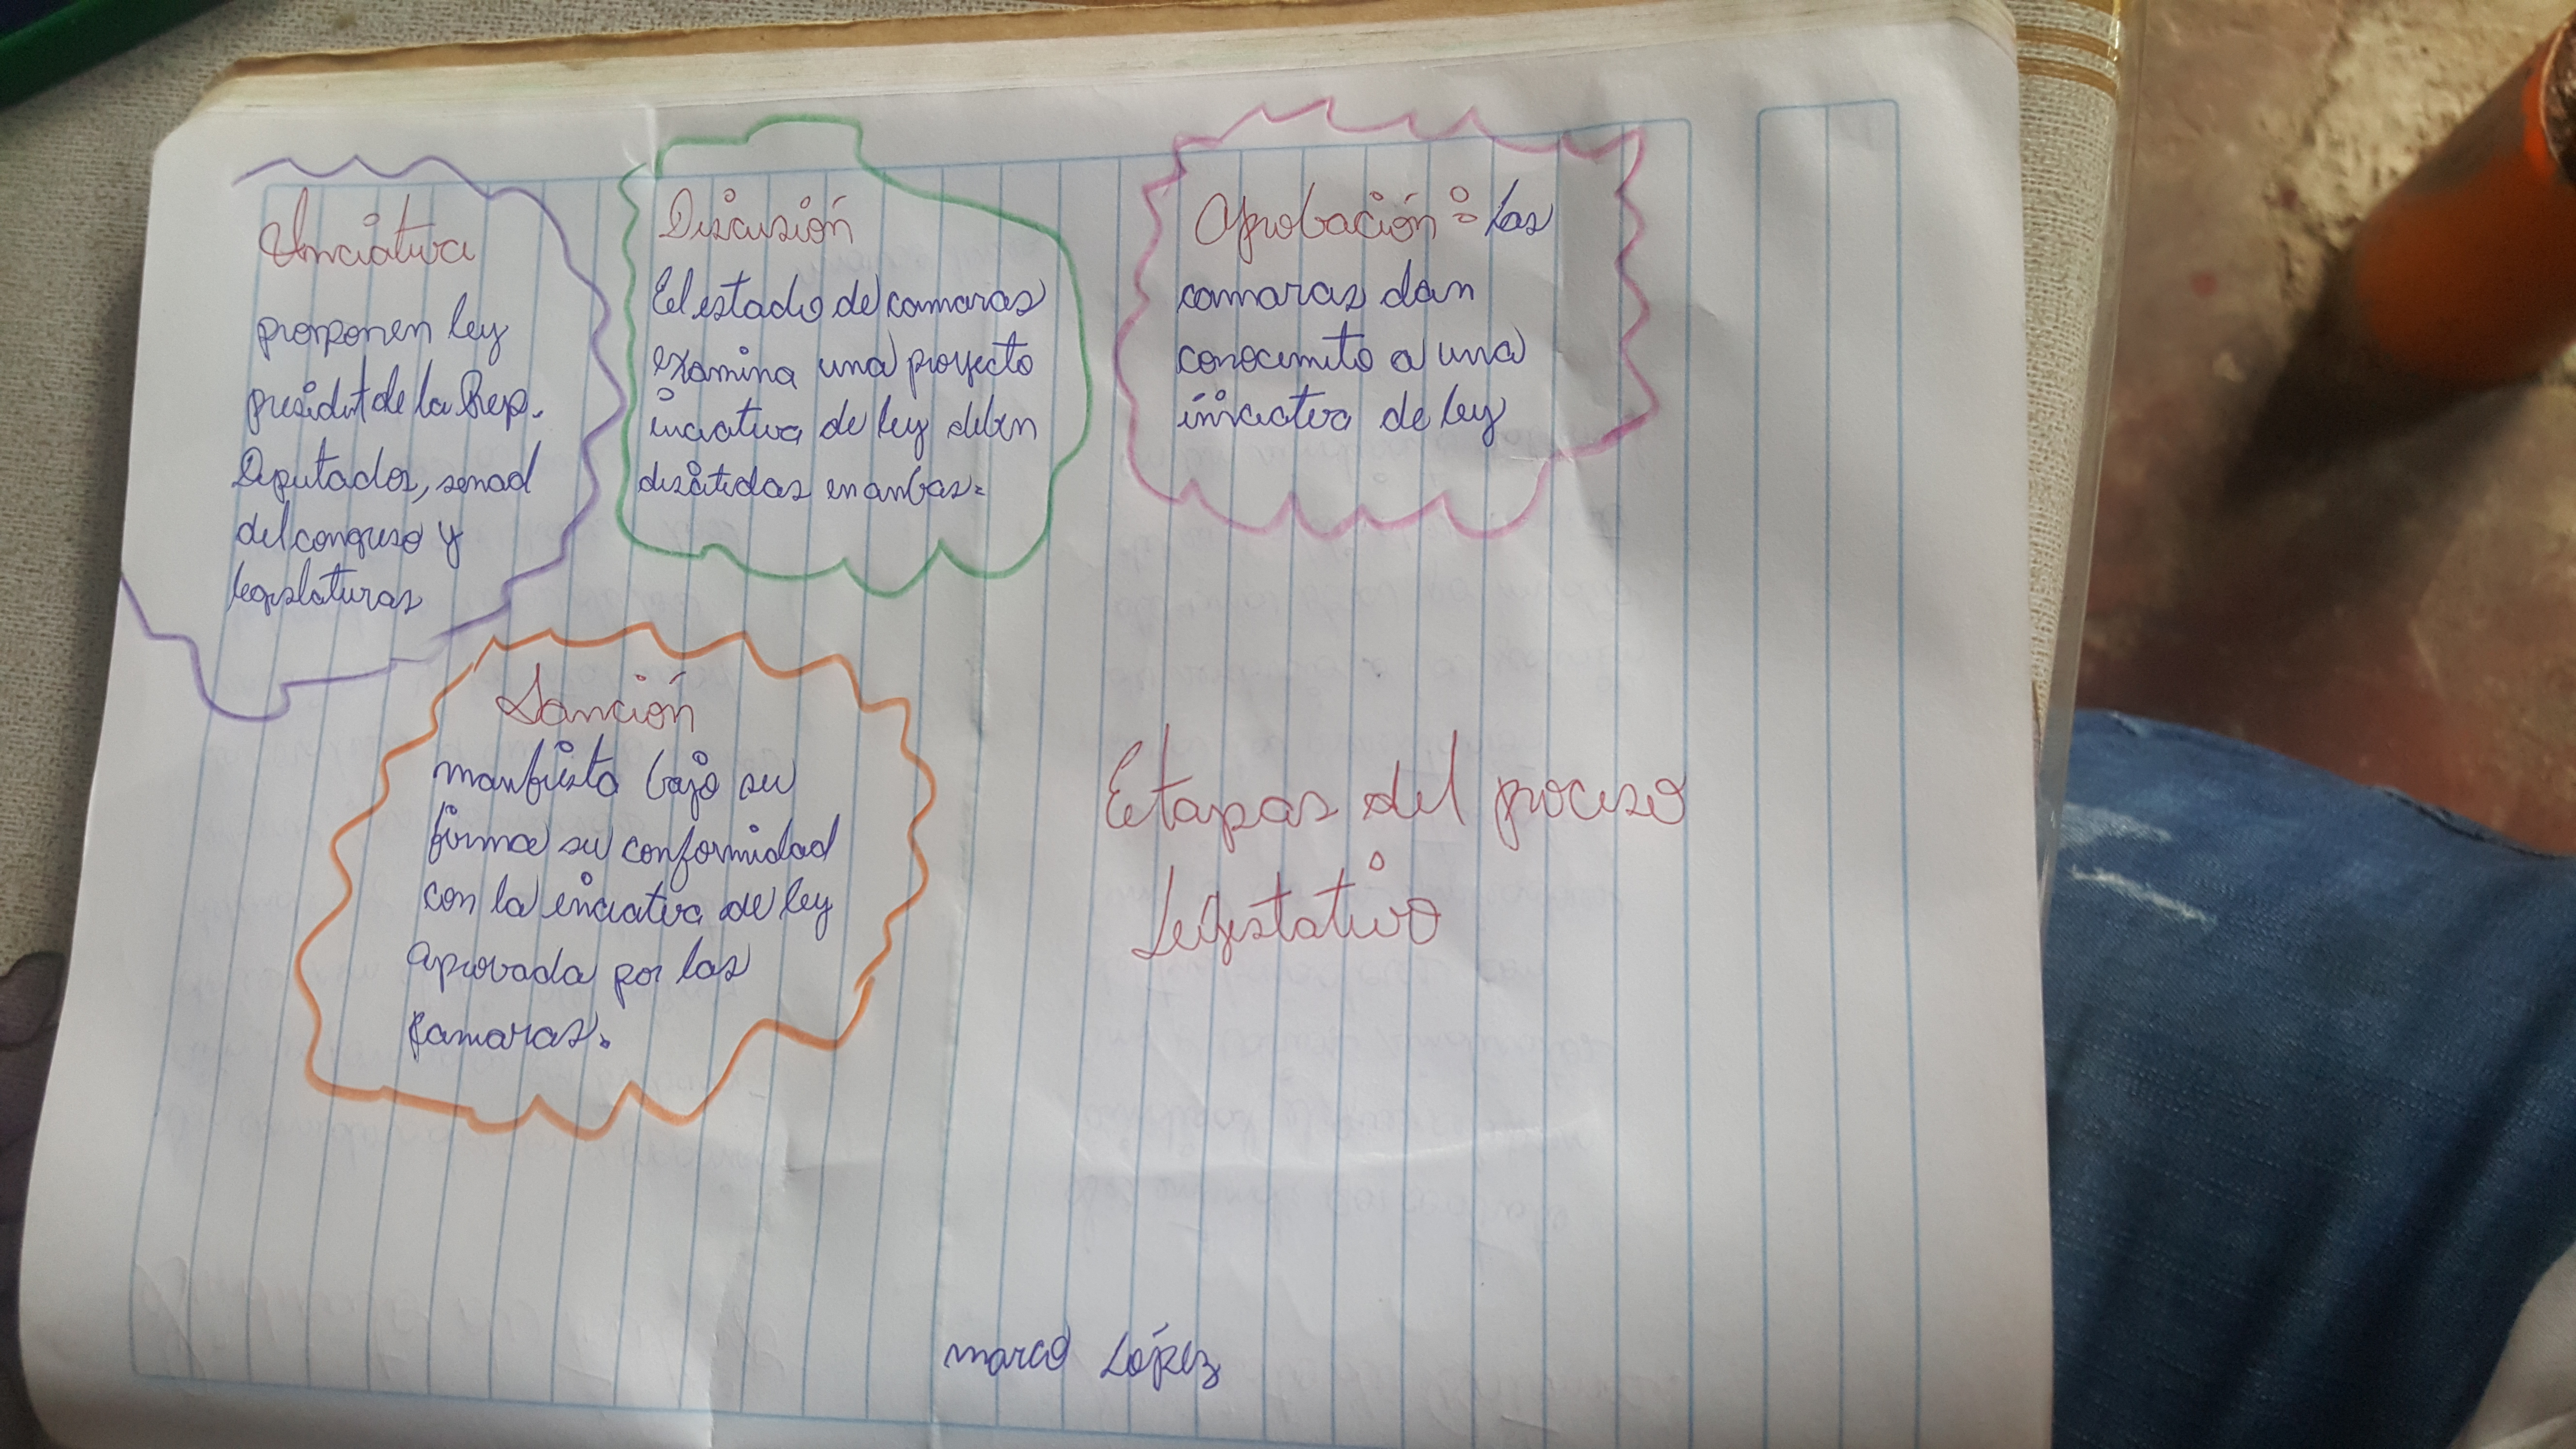 Inciativa
proponen ley
presidt de la Rep.
Diputados, senad
del congreso y
legislaturas
Discusión
El estado de camaras
examina una proyecto
inciativa de ley deben
discitidas en anbas.
Aprobación: las
camaras dan
conocimito a una
iniciativa de ley
Sanción
manfiesta bajo su
firma su conformidad
con la inciativa de ley
aprovada por las
camaras.
Etapas del proceso
marco López